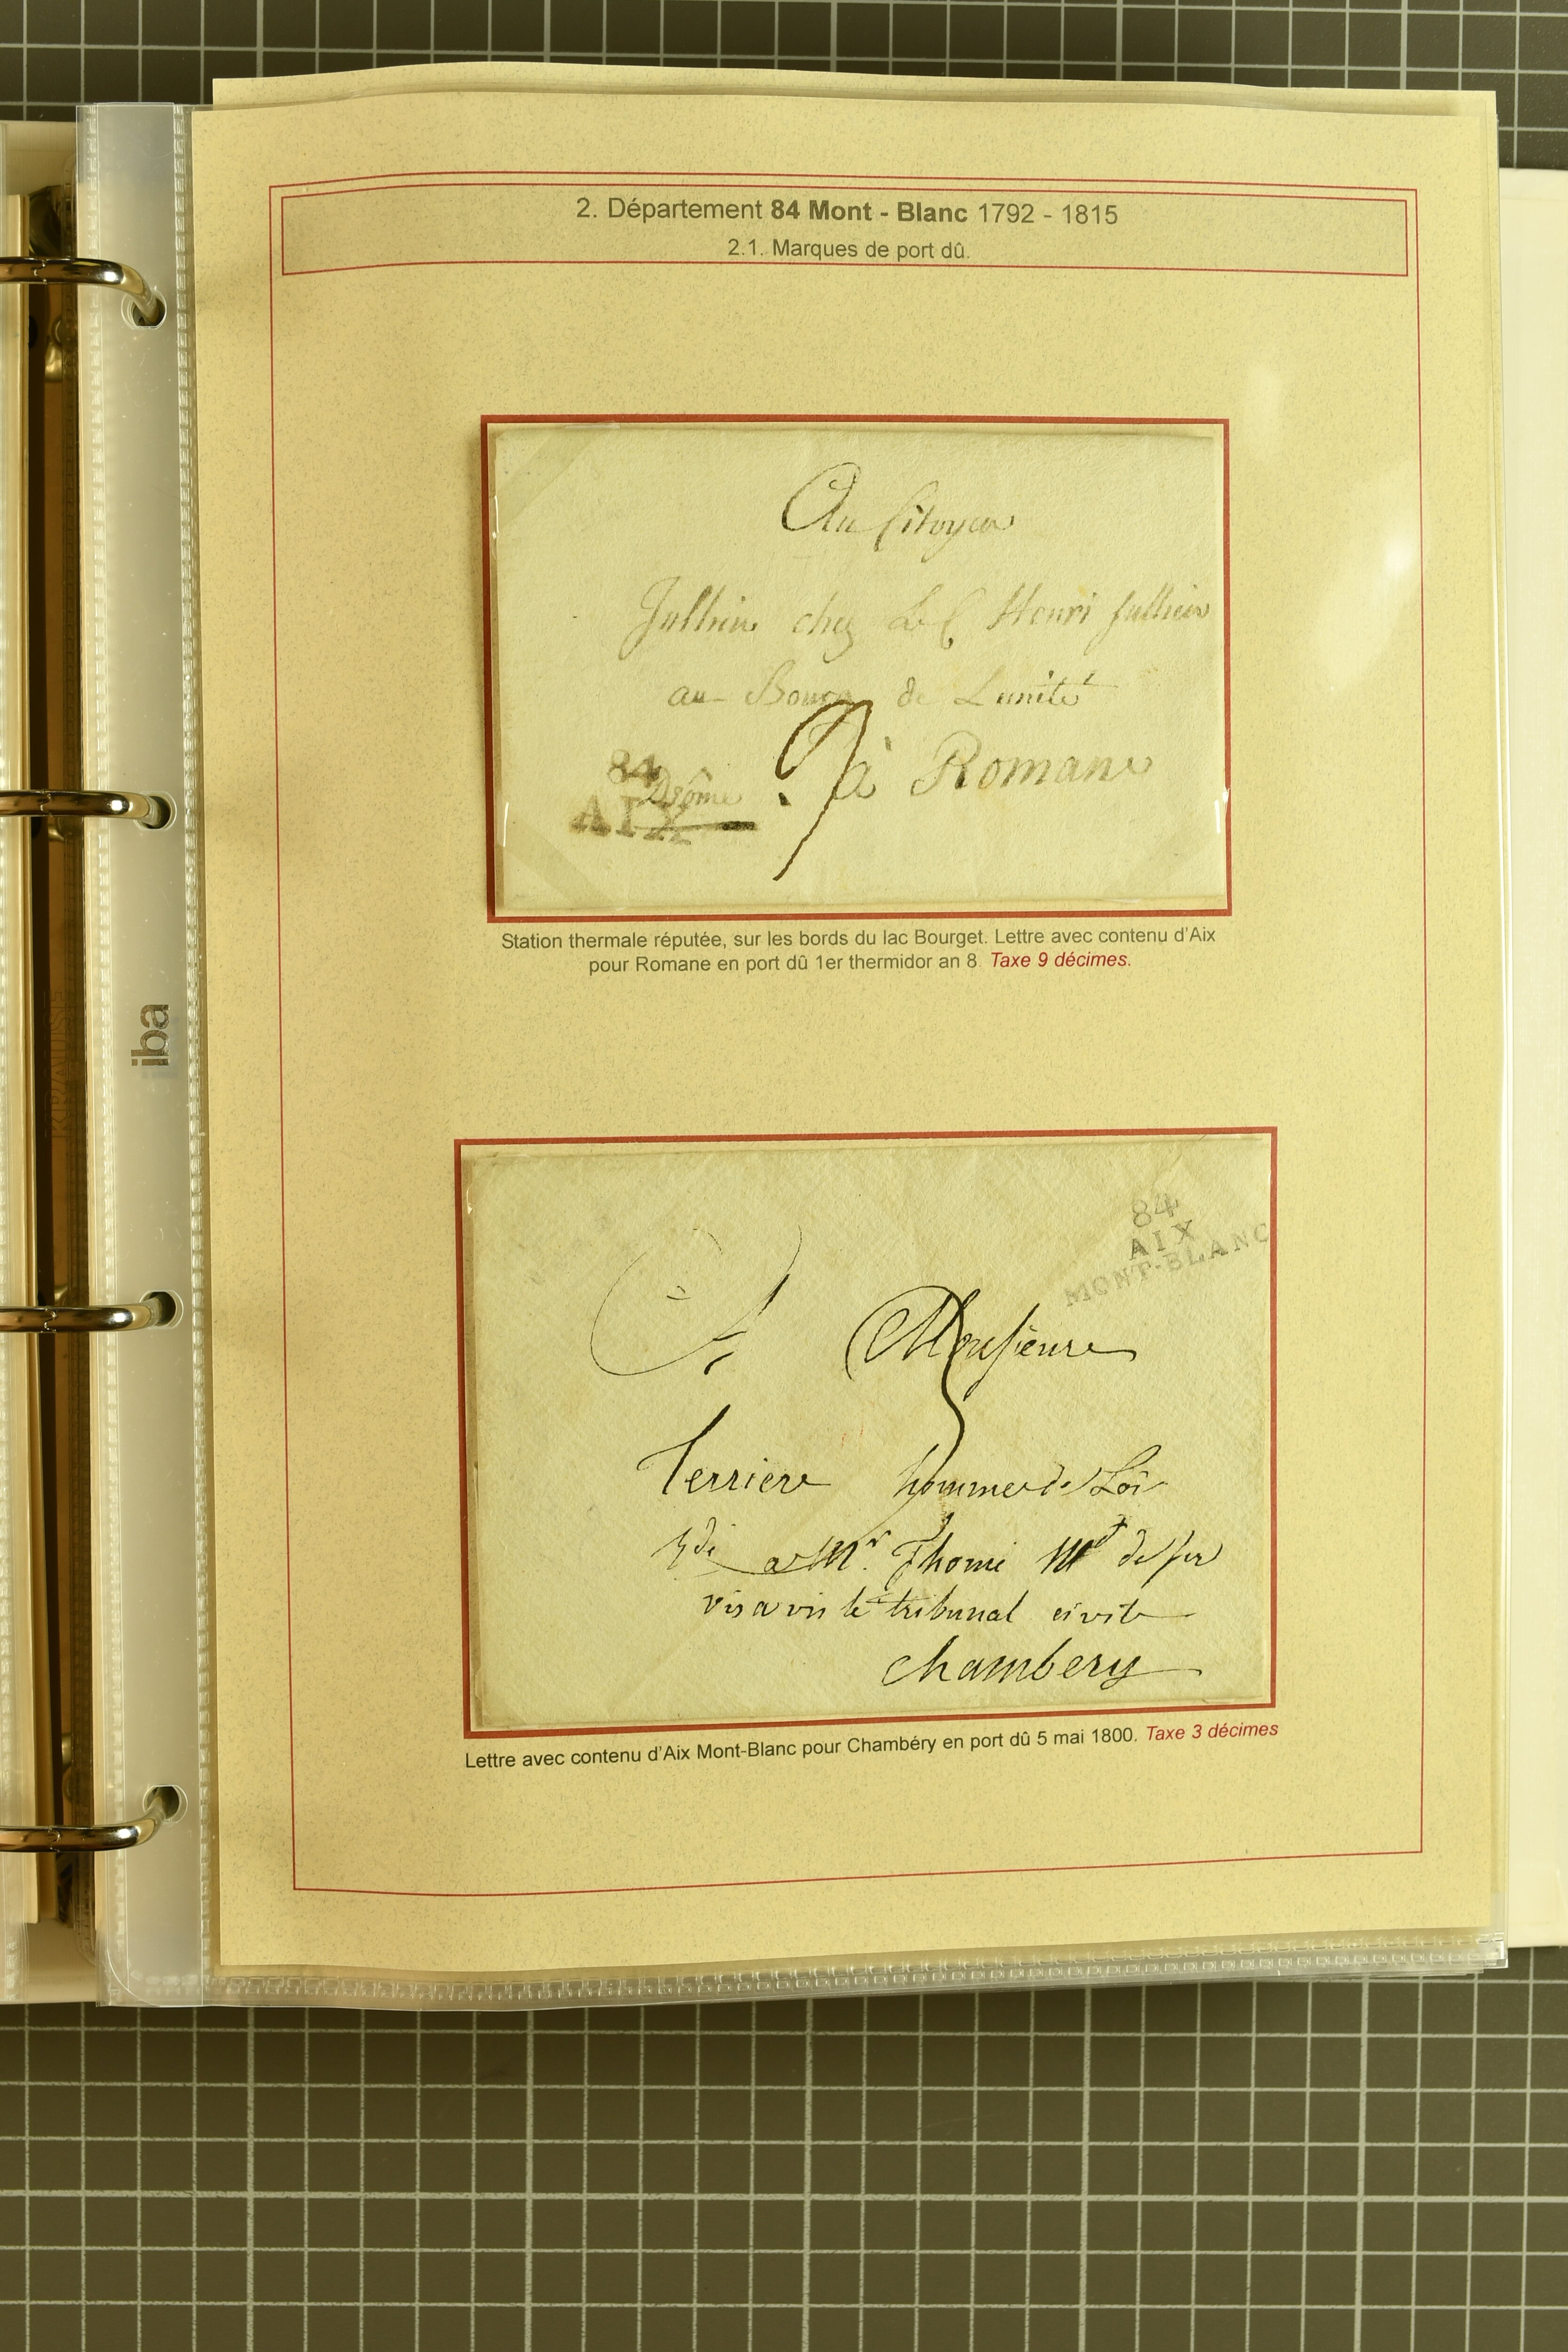 2. Département 84 Mont - Blanc 1792 - 1815
2.1. Marques de port dû.
Au Citoyen
Jullien chez Le C Henri Jullien
au Bourg de Lunité
à Romans
9
84
Drôme
AIX
Station thermale réputée, sur les bords du lac Bourget. Lettre avec contenu d'Aix
pour Romane en port dû 1er thermidor an 8 Taxe 9 décimes.
iba
84
AIX
MONT-BLANC
A Monsieur
3
homme de Loi
Mr. Thomé Md de fer
vis a vis le tribunal civile
chambery
Lettre avec contenu d'Aix Mont-Blanc pour Chambéry en port dû 5 mai 1800. Taxe 3 décimes